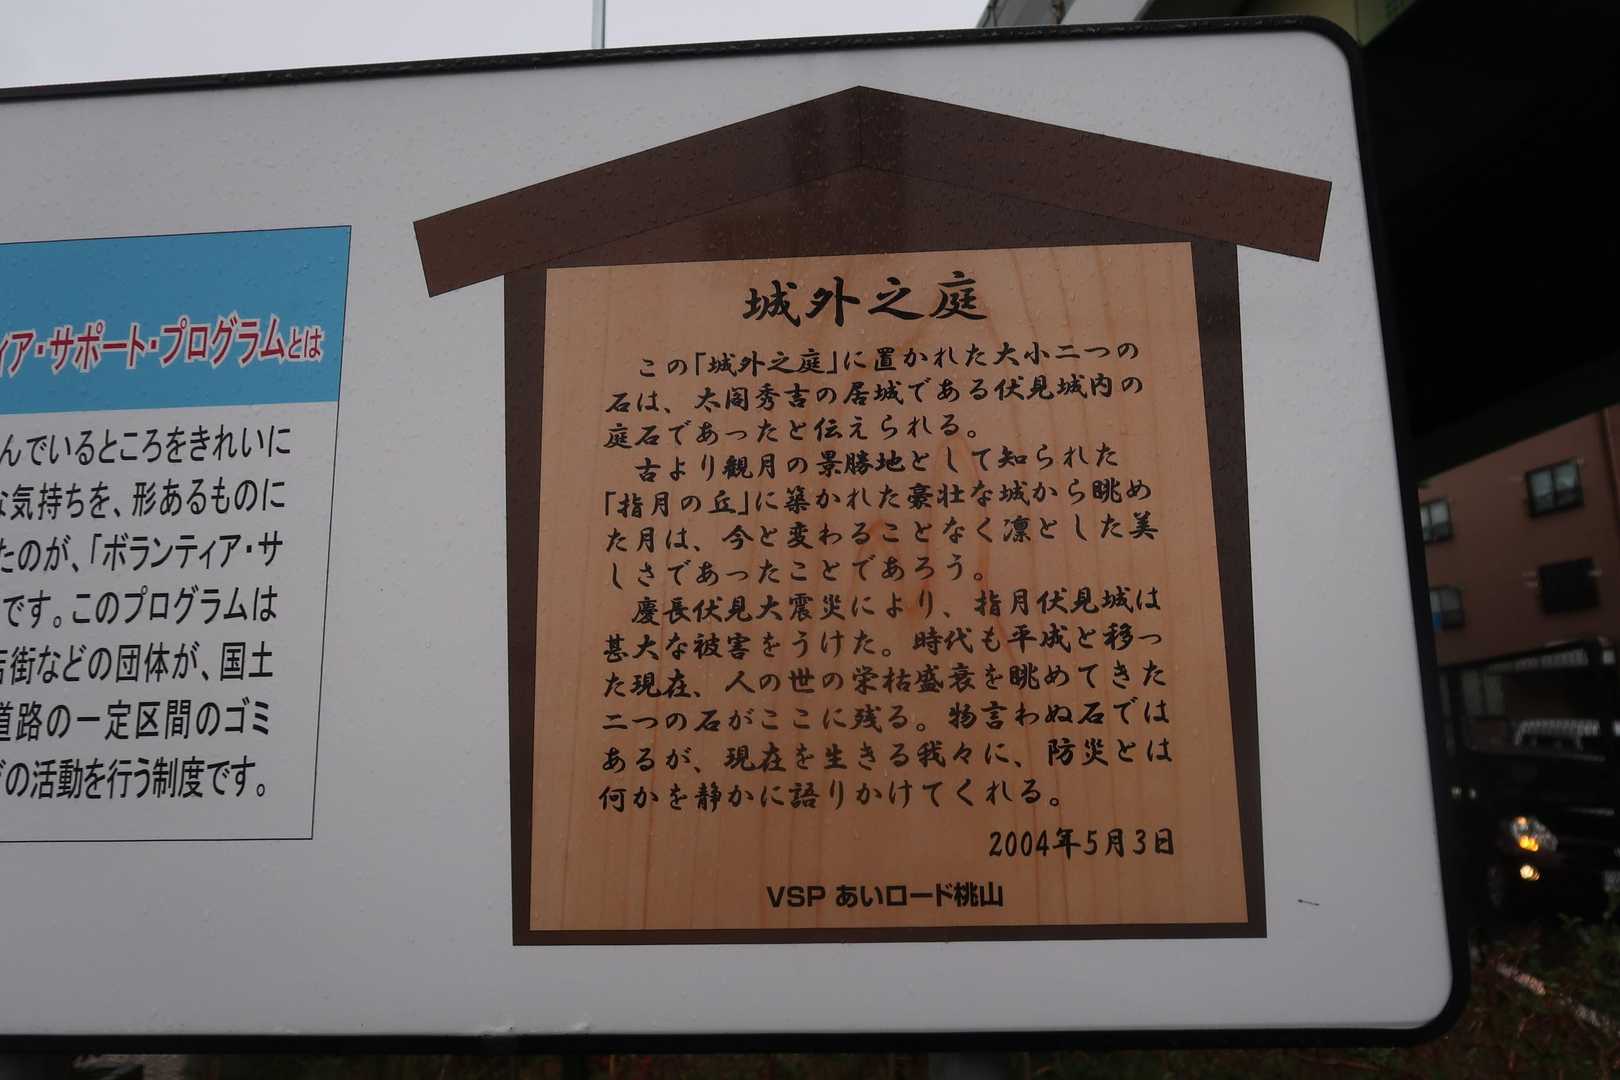 ィア・サポート・プログラムとは
んでいるところをきれいに
な気持ちを、形あるものに
たのが、「ボランティア・サ
です。このプログラムは
店街などの団体が、国土
道路の一定区間のゴミ
どの活動を行う制度です。
城外之庭
この「城外之庭」に置かれた大小二つの
石は、太閤秀吉の居城である伏見城内の
庭石であったと伝えられる。
古より観月の景勝地として知られた
「指月の丘」に築かれた豪壮な城から眺め
た月は、今と変わることなく凛とした美
しさであったことであろう。
慶長伏見大震災により、指月伏見城は
甚大な被害をうけた。時代も平成と移っ
た現在、人の世の栄枯盛衰を眺めてきた
二つの石がここに残る。物言わぬ石では
あるが、現在を生きる我々に、防災とは
何かを静かに語りかけてくれる。
2004年5月3日
VSP あいロード桃山